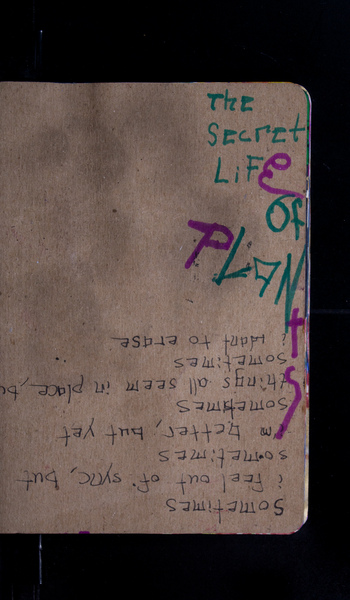 THE
SECRET
LIFE
OF
PLANtS
Sometimes
i feel out of sync, but
sometimes
i'm better, but yet
sometimes
things all seem in place, bu
sometimes
i want to erase